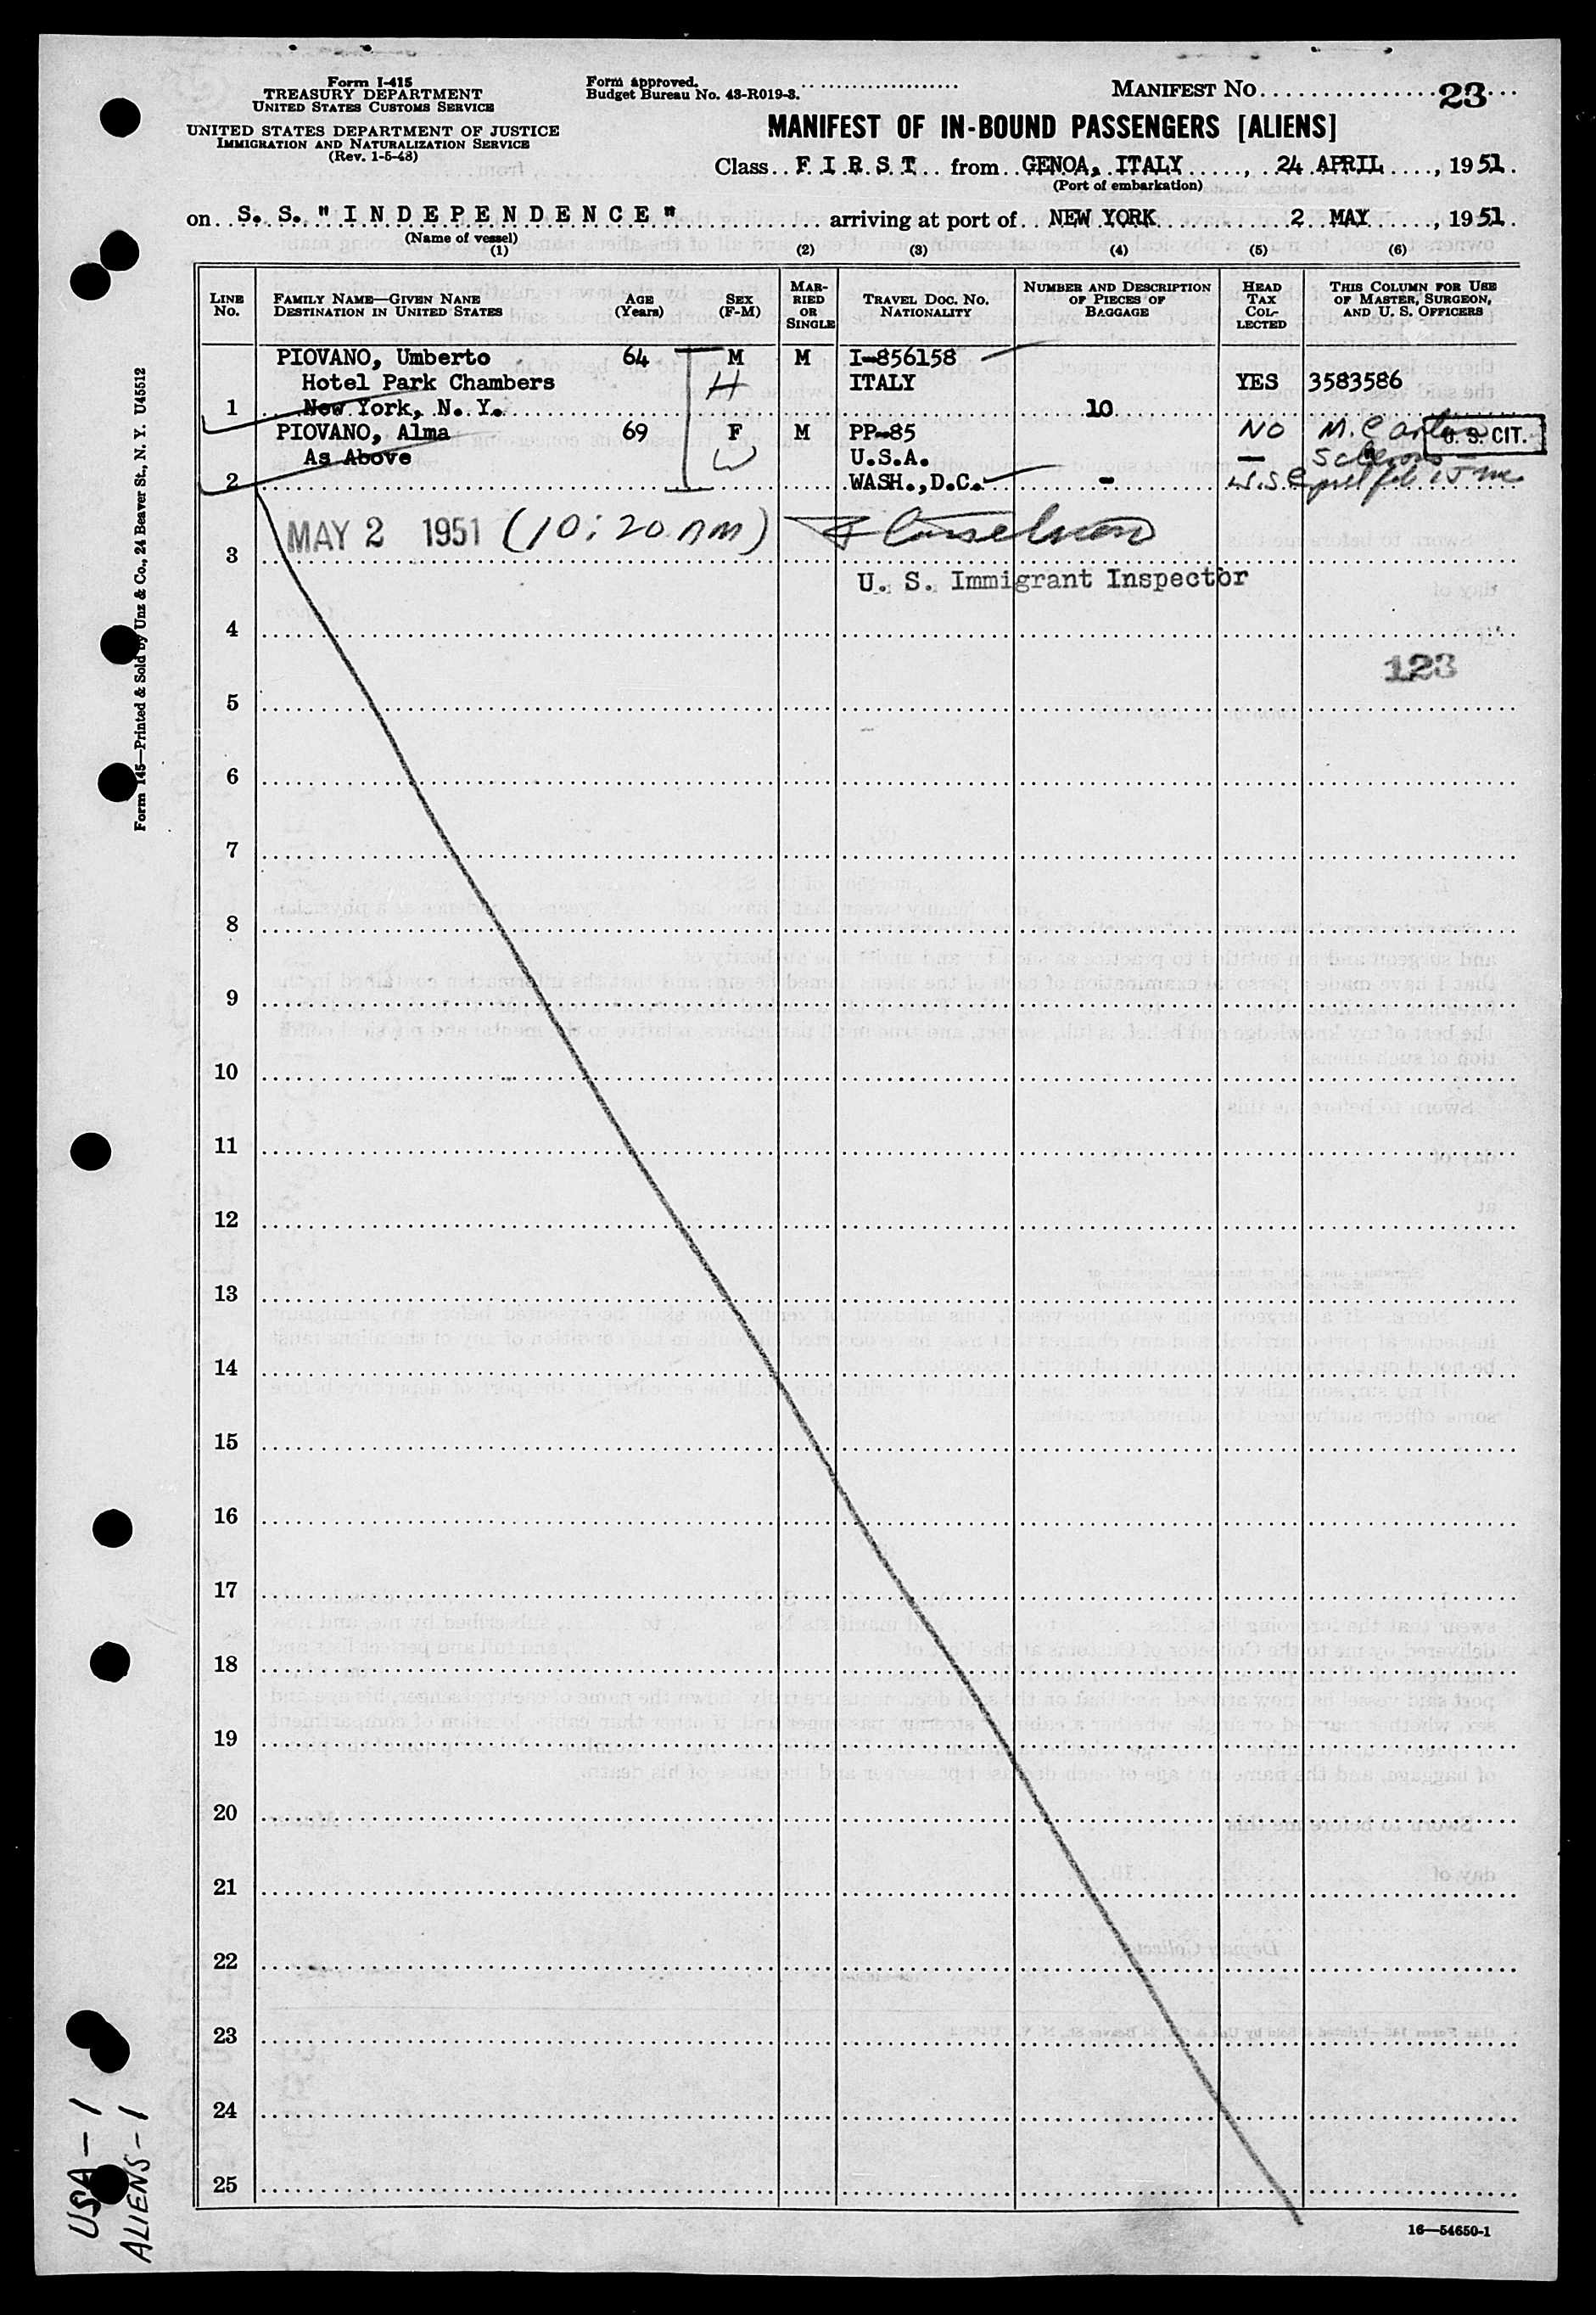 Form I-415
TREASURY DEPARTMENT
UNITED STATES CUSTOMS SERVICE
UNITED STATES DEPARTMENT OF JUSTICE
IMMIGRATION AND NATURALIZATION SERVICE
(Rev. 1-5-48)
Form approved.
Budget Bureau No. 43-R019-3.
MANIFEST NO. 23
MANIFEST OF IN-BOUND PASSENGERS [ALIENS]
Class F I R S T from GENOA, ITALY, 24 APRIL, 1951.
(Port of embarkation)
on S. S. "I N D E P E N D E N C E" arriving at port of NEW YORK 2 MAY, 1951.
(Name of vessel)
(1) (2) (3) (4) (5) (6)
LINE No. FAMILY NAME—GIVEN NANE DESTINATION IN UNITED STATES AGE (Years) SEX (F-M) MAR-RIED OR SINGLE TRAVEL DOC. NO. NATIONALITY NUMBER AND DESCRIPTION OF PIECES OF BAGGAGE HEAD TAX COL-LECTED THIS COLUMN FOR USE OF MASTER, SURGEON, AND U. S. OFFICERS
PIOVANO, Umberto 64 M M I-856158
Hotel Park Chambers H ITALY YES 3583586
1 New York, N. Y. 10
PIOVANO, Alma 69 F M PP-85 NO U. S. CIT.
As Above W U.S.A. —
2 WASH., D.C. -
MAY 2 1951 (10:20 AM)
3
U. S. Immigrant Inspector
4
123
5
6
7
8
9
10
11
12
13
14
15
16
17
18
19
20
21
22
23
24
25
16—54650-1
Form 145—Printed & Sold by Unz & Co., 24 Beaver St., N. Y. U45512
USA - 1
ALIENS - 1